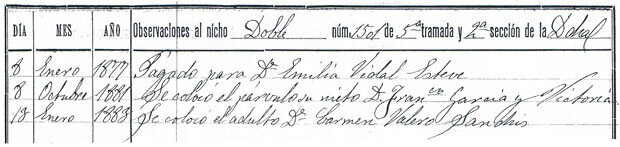 DÍA MES AÑO Observaciones al nicho Doble núm. 1501 de 5ª tramada y 2ª sección de la Dchal
8 Enero 1877 Pagado para Dª Emilia Vidal Esteve
8 Octubre 1881 Se colocó el párvulo su nieto D. Franco Garcia y Victoria
13 Enero 1883 Se colocó el adulto Dª Carmen Valero Sanchis